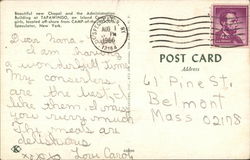 Beautiful new Chapel and the Administration
Building at TAPAWINGO, an Island Camp for
girls, located off-shore from CAMP-of-the-
Speculator, New York.
Dear Nana -
I am having
a wonderful time
My counselors
are the best.
I like them. I miss
you very much
The meals are
delishious
xoxo Love Carol
AUG
PM
1966
POST CARD
Address
61 Pine St.
Belmont
Mass 02178